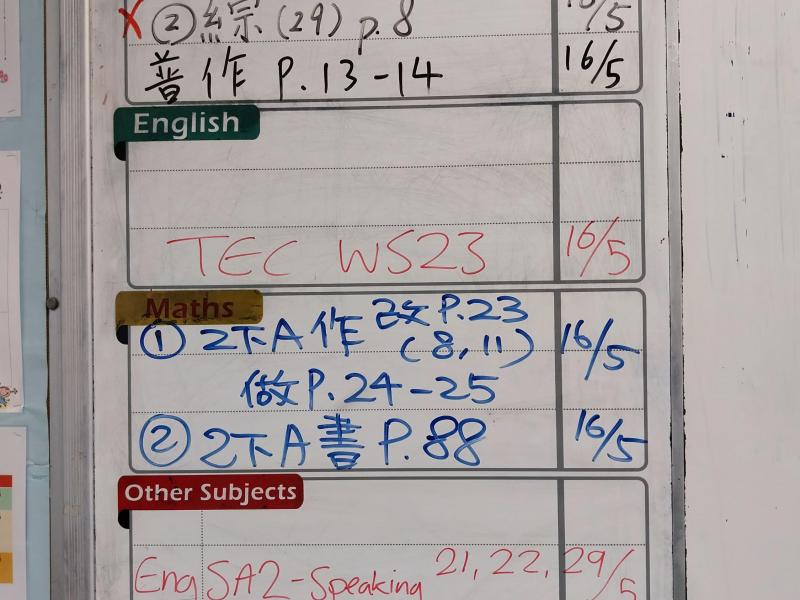 X ② 綜 (29) p.8 16/5
普作 P.13-14 16/5
English
TEC WS23 16/5
Maths
① 2下A作 改P.23 (8,11) 16/5
做P.24-25
② 2下A書 P.88 16/5
Other Subjects
Eng SA2-Speaking 21, 22, 29/5